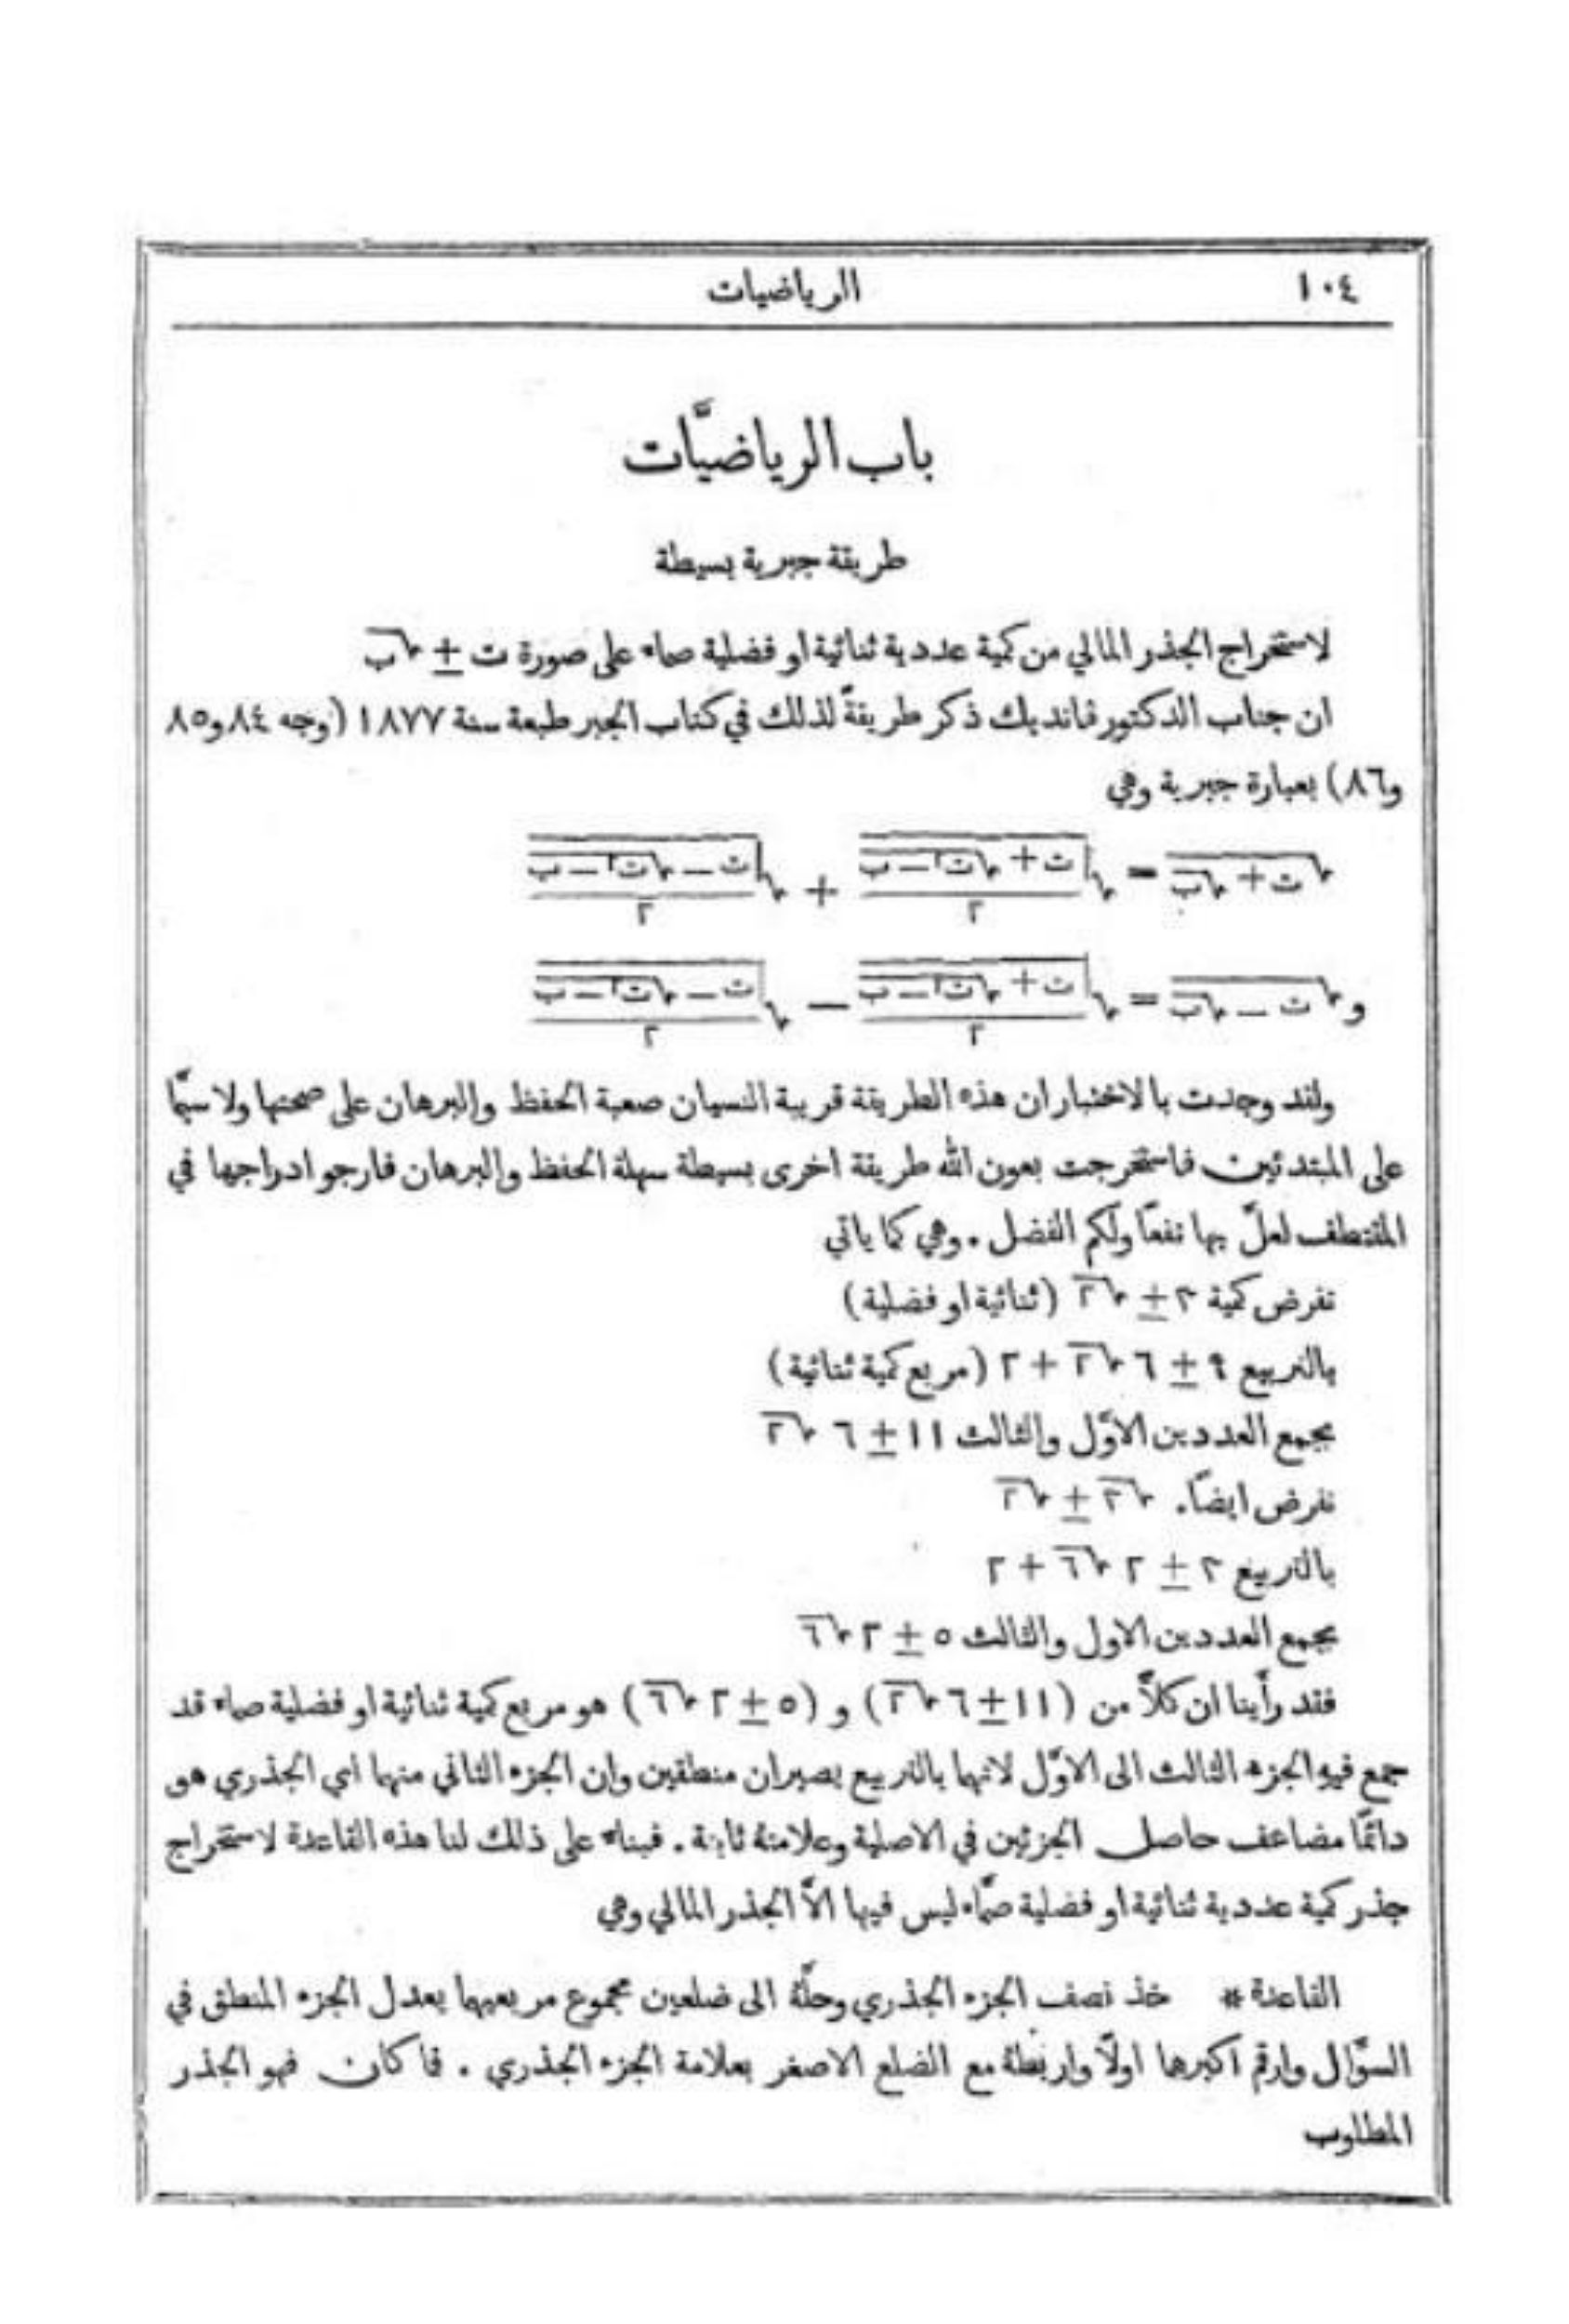 ١٠٤ الرياضيات
باب الرياضيَّات
طريقة جبرية بسيطة
لاستخراج الجذر المالي من كمية عددية ثنائية او فضلية صماء على صورة ت ± √ب
ان جناب الدكتور فانديك ذكر طريقةً لذلك في كتاب الجبر طبعة سنة ١٨٧٧ (وجه ٨٤ و٨٥
و٨٦) بعبارة جبرية وهي
√(ت + √ب) = √((ت + √(ت٢ − ب))/٢) + √((ت − √(ت٢ − ب))/٢)
و √(ت − √ب) = √((ت + √(ت٢ − ب))/٢) − √((ت − √(ت٢ − ب))/٢)
ولقد وجدت بالاختبار ان هذه الطريقة قريبة النسيان صعبة الحفظ والبرهان على صحتها ولا سيَّما
على المبتدئين فاستخرجت بعون الله طريقة اخرى بسيطة سهلة الحفظ والبرهان فارجو ادراجها في
المقتطف لعلَّ بها نفعًا ولكم الفضل . وهي كما ياتي
نفرض كمية ٣ ± √٢ (ثنائية او فضلية)
بالتربيع ٩ ± ٦ √٢ + ٢ (مربع كمية ثنائية)
بجمع العددين الاوَّل والثالث ١١ ± ٦ √٢
نفرض ايضًا. √٣ ± √٢
بالتربيع ٣ ± ٢ √٦ + ٢
بجمع العددين الاول والثالث ٥ ± ٢ √٦
فقد رأَينا ان كلاًّ من (١١ ± ٦ √٢) و (٥ ± ٢ √٦) هو مربع كمية ثنائية او فضلية صماء قد
جمع فيهِ الجزء الثالث الى الاوَّل لانهما بالتربيع يصيران منطقين وان الجزء الثاني منهما اي الجذري هو
دائمًا مضاعف حاصل الجزئين في الاصلية وعلامتهُ ثابتة . فبناء على ذلك لنا هذه القاعدة لاستخراج
جذر كمية عددية ثنائية او فضلية صمَّاء ليس فيها الاَّ الجذر المالي وهي
القاعدة * خذ نصف الجزء الجذري وحلَّهُ الى ضلعين مجموع مربعيهما يعدل الجزء المنطق في
السوَّال وارقم اكبرها اولاً واربطهُ مع الضلع الاصغر بعلامة الجزء الجذري . فما كان فهو الجذر
المطلوب